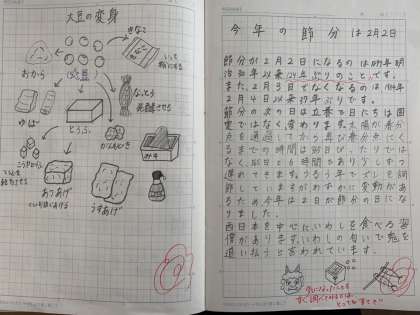 大豆の変身
きなこ
いって
粉にする
おから
大豆
なっとう
発酵させる
ゆば
とうふ
がんもどき
みそ
こうやどうふ
あつあげ
うすあげ
今年の節分は2月2日
節分が2月2日になるのは1897年明
治30年以来124年ぶりのことです。
また、2月3日でなくなるのは1984年
2月4日以来37年ぶりです。
節分の次の日は立春で日にちは固
定ではなく、変わります。太陽が春分
点を通過してから再び春分点にくる
までの時間は365日ぴったりでは
なく、365日と6時間であり少しずつ
遅れてきます。うるう年でずれを調
節していますがわずかに変動があ
るため今年は2日が節分の日にな
りました。
西日本を中心にいわしを食べる習
慣があります。いわしの匂いで鬼を
追い払うと言われています。
気になったことを
すぐ調べてみるのは、
とってもすてき